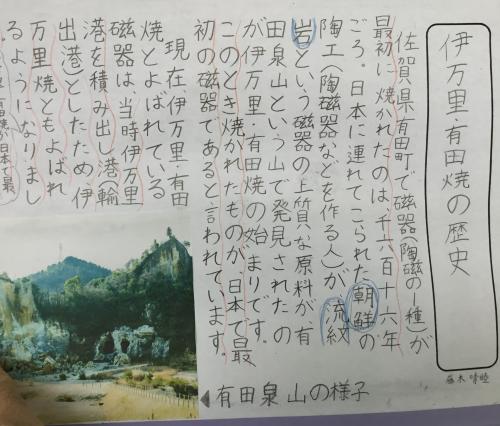 伊万里・有田焼の歴史
佐賀県有田町で磁器(陶磁の一種)が
最初に焼かれたのは、千六百十六年
ごろ。日本に連れてこられた朝鮮の
陶工(陶磁器などを作る人)が流紋
岩という磁器の上質な原料が有
田泉山という山で発見されたの
が伊万里・有田焼の始まりです。
このとき焼かれたものが、日本で最
初の磁器であると言われています。
現在、伊万里・有田
焼とよばれている
磁器は、当時伊万里
港を積み出し港(輸
出港)としたため、伊
万里焼ともよばれ
るようになりまし
有田焼が日本で最
◀有田泉山の様子